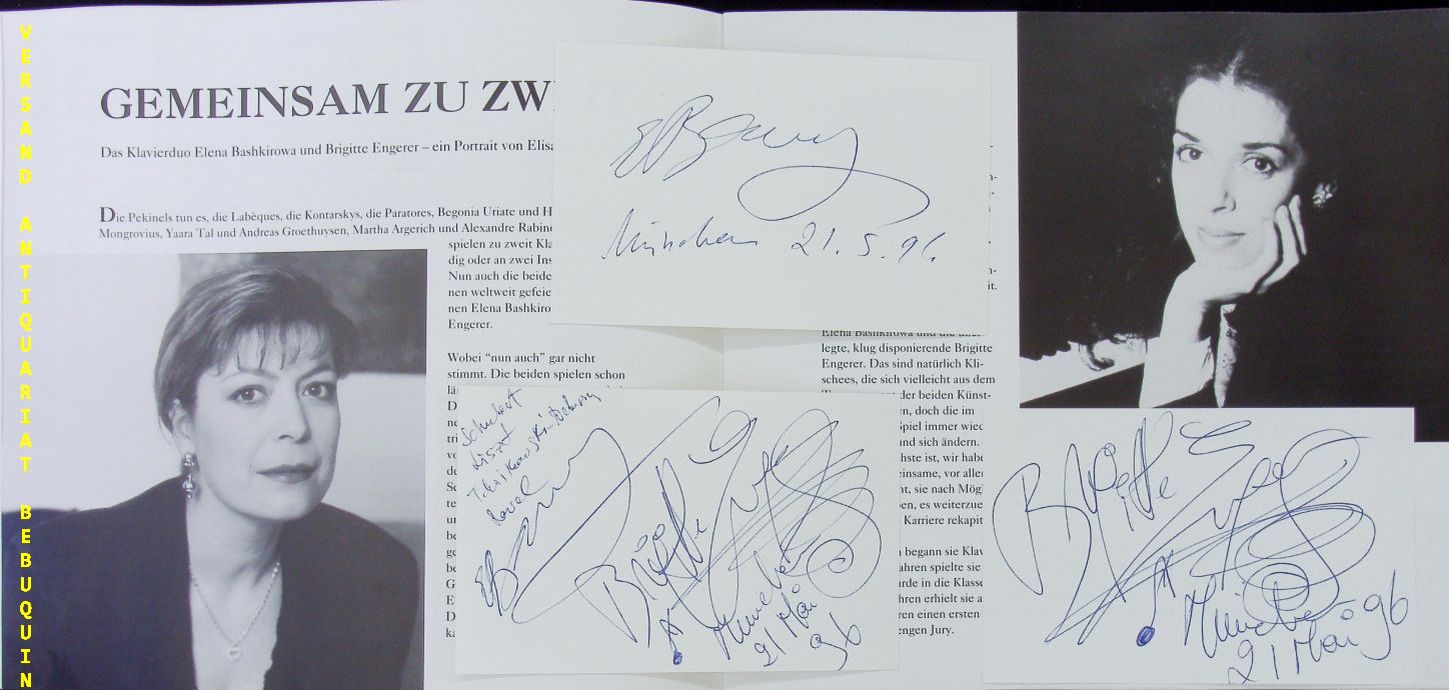 VERSAND ANTIQUARIAT BEBUQUIN
GEMEINSAM ZU ZW
Das Klavierduo Elena Bashkirowa und Brigitte Engerer – ein Portrait von Elisa
Die Pekinels tun es, die Labèques, die Kontarskys, die Paratores, Begonia Uriate und H
Mongrovius, Yaara Tal und Andreas Groethuysen, Martha Argerich und Alexandre Rabin
spielen zu zweit Kla
dig oder an zwei Ins
Nun auch die beide
nen weltweit gefeie
nen Elena Bashkiro
Engerer.
Wobei “nun auch” gar nicht
stimmt. Die beiden spielen schon
München 21.5.96
it.
Elena Bashkirowa und die
legte, klug disponierende Brigitte
Engerer. Das sind natürlich Kli-
schees, die sich vielleicht aus dem
der beiden Künst-
n, doch die im
piel immer wied
nd sich ändern.
hste ist, wir habe
einsame, vor aller
nt, sie nach Mög
en, es weiterzue
Karriere rekapit
begann sie Klav
ahren spielte sie
rde in die Klasse
hren erhielt sie a
ren einen ersten
engen Jury.
Schubert
Liszt
Ravel
Brigitte
21 Mai
96
Brigitte
München 96
21 Mai